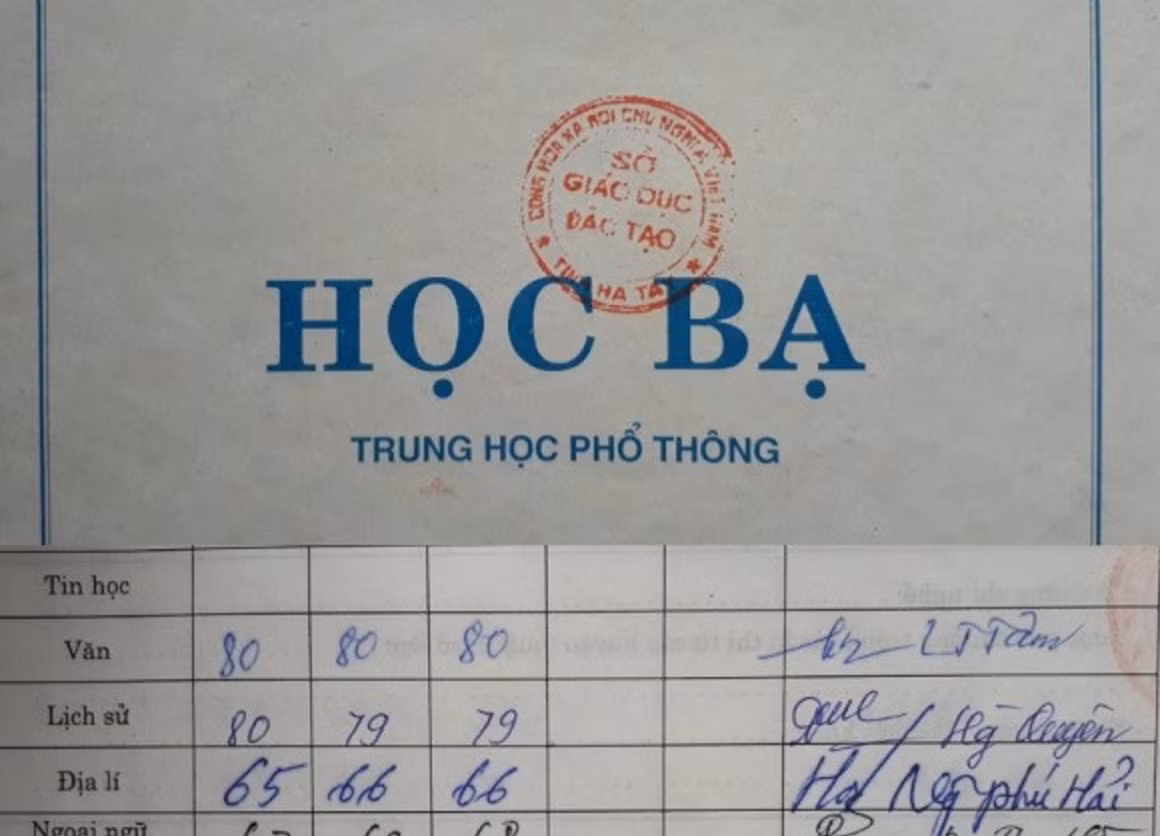 CỘNG HÒA XÃ HỘI CHỦ NGHĨA VIỆT NAM
SỞ
GIÁO DỤC
ĐÀO TẠO
TỈNH HÀ
HỌC BẠ
TRUNG HỌC PHỔ THÔNG
Tin học
Văn 80 80 80 LT Tâm
Lịch sử 80 79 79 Quyên
Địa lí 65 66 66 Ng phú Hải
Ngoại ngữ